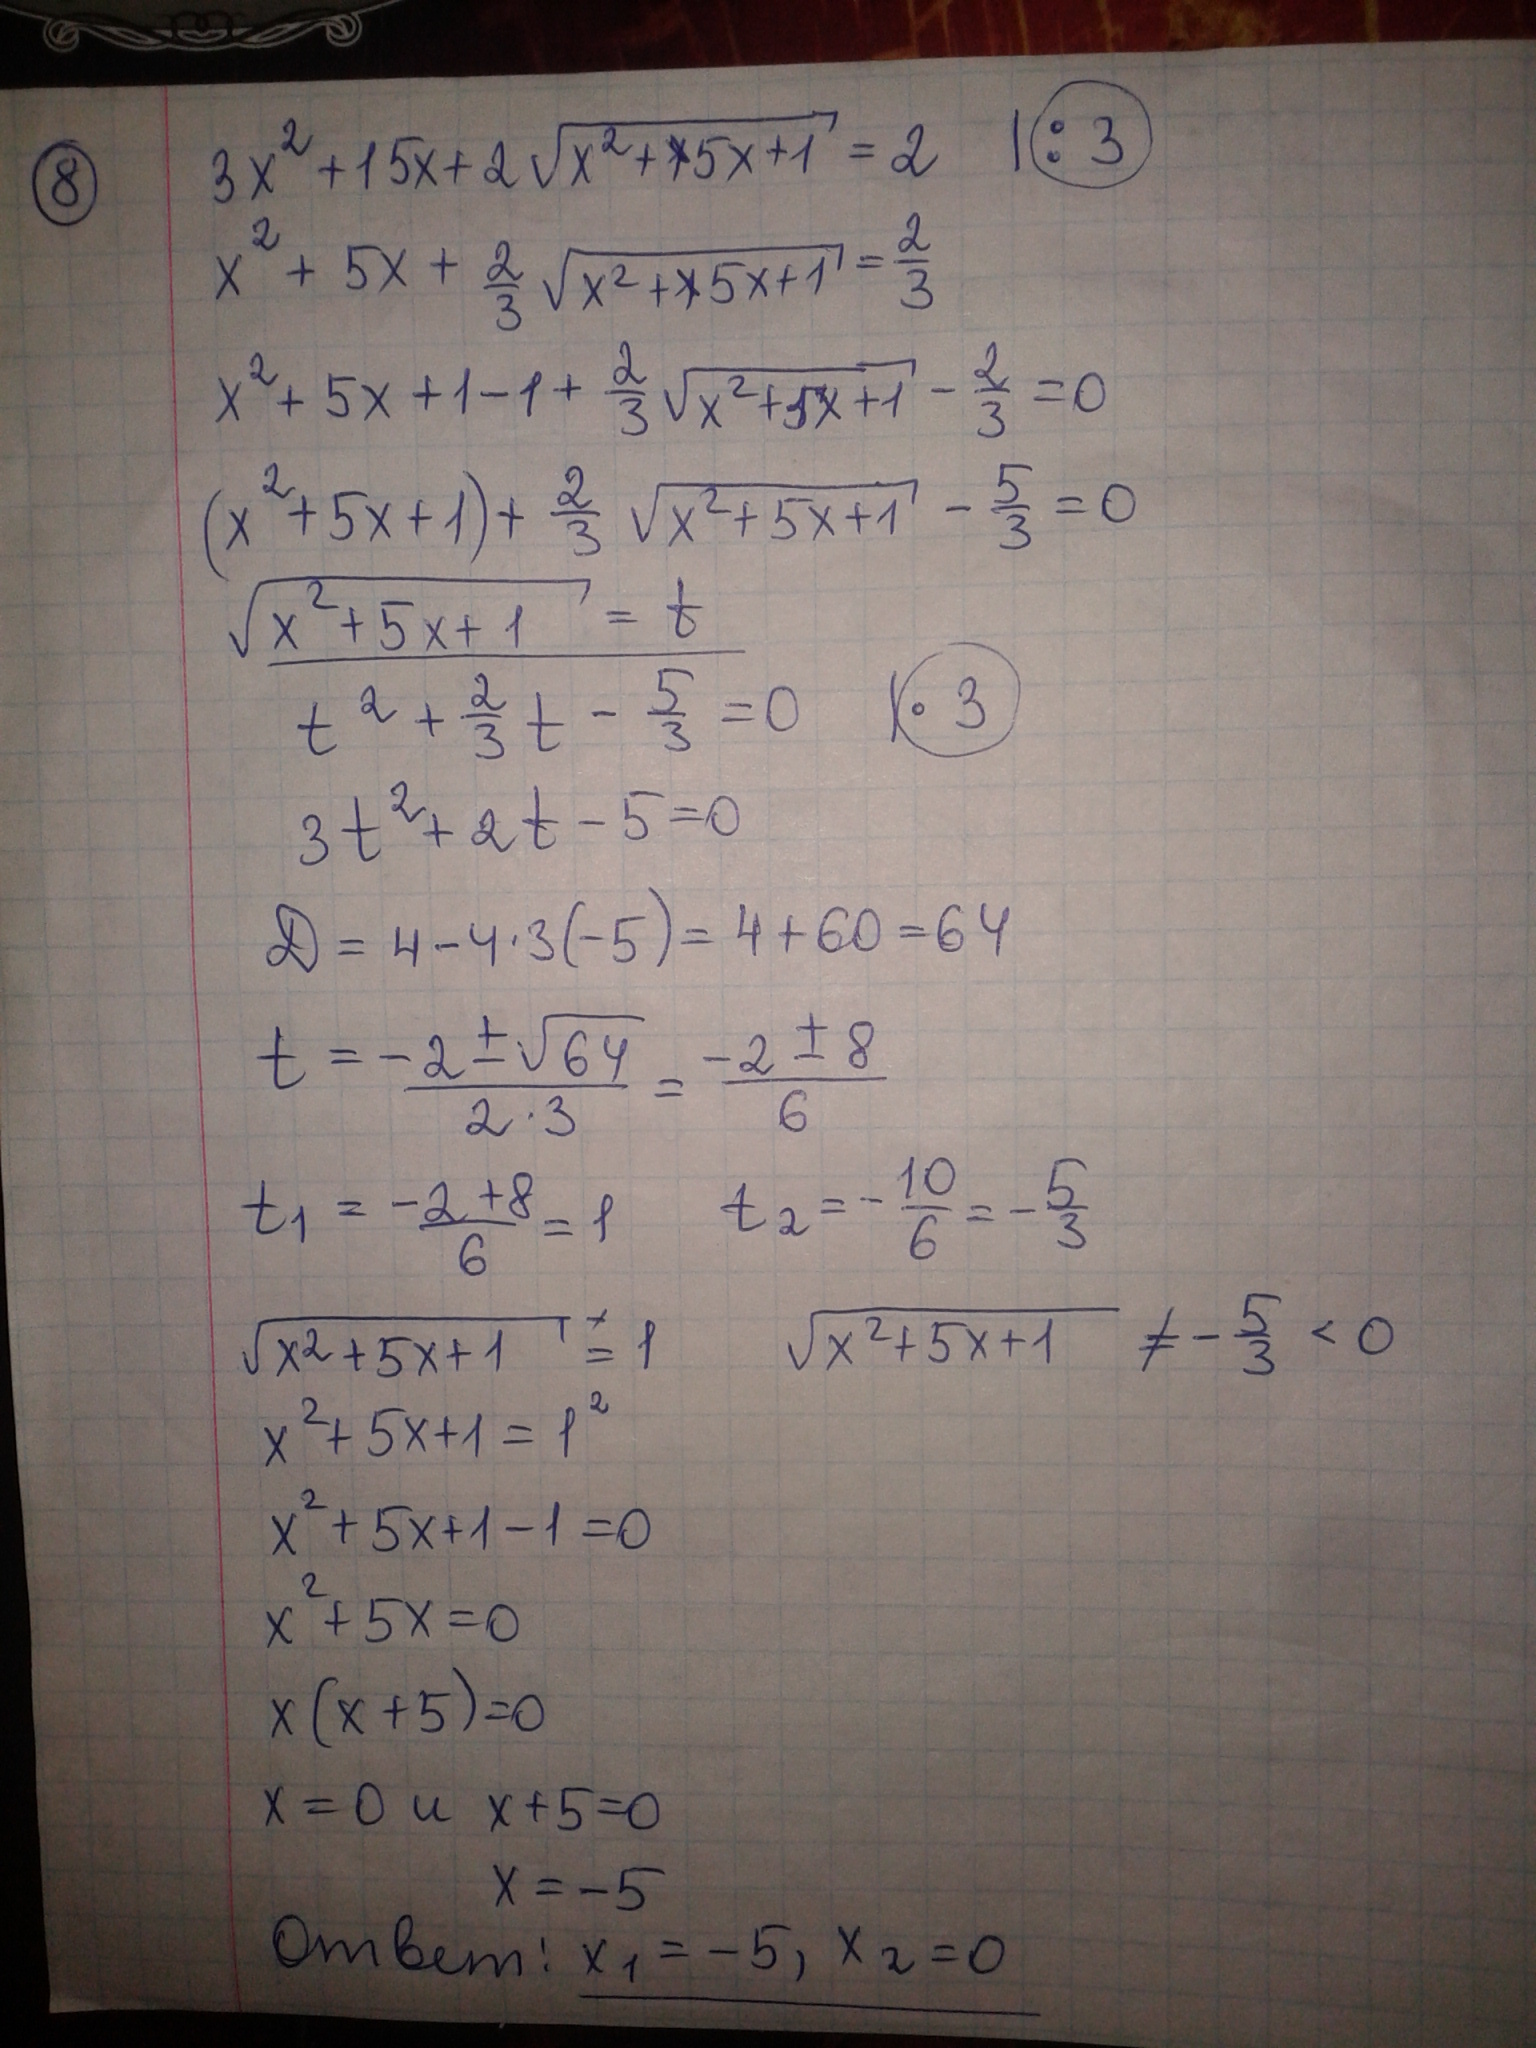 8 3x² + 15x + 2√(x² + 5x + 1) = 2 | : 3
x² + 5x + 2/3 √(x² + 5x + 1) = 2/3
x² + 5x + 1 - 1 + 2/3 √(x² + 5x + 1) - 2/3 = 0
(x² + 5x + 1) + 2/3 √(x² + 5x + 1) - 5/3 = 0
√(x² + 5x + 1) = t
t² + 2/3 t - 5/3 = 0 | · 3
3t² + 2t - 5 = 0
D = 4 - 4·3(-5) = 4 + 60 = 64
t = (-2 ± √64)/(2·3) = (-2 ± 8)/6
t₁ = (-2 + 8)/6 = 1 t₂ = -10/6 = -5/3
√(x² + 5x + 1) = 1 √(x² + 5x + 1) ≠ -5/3 < 0
x² + 5x + 1 = 1²
x² + 5x + 1 - 1 = 0
x² + 5x = 0
x(x + 5) = 0
x = 0 и x + 5 = 0
x = -5
Ответ: x₁ = -5, x₂ = 0